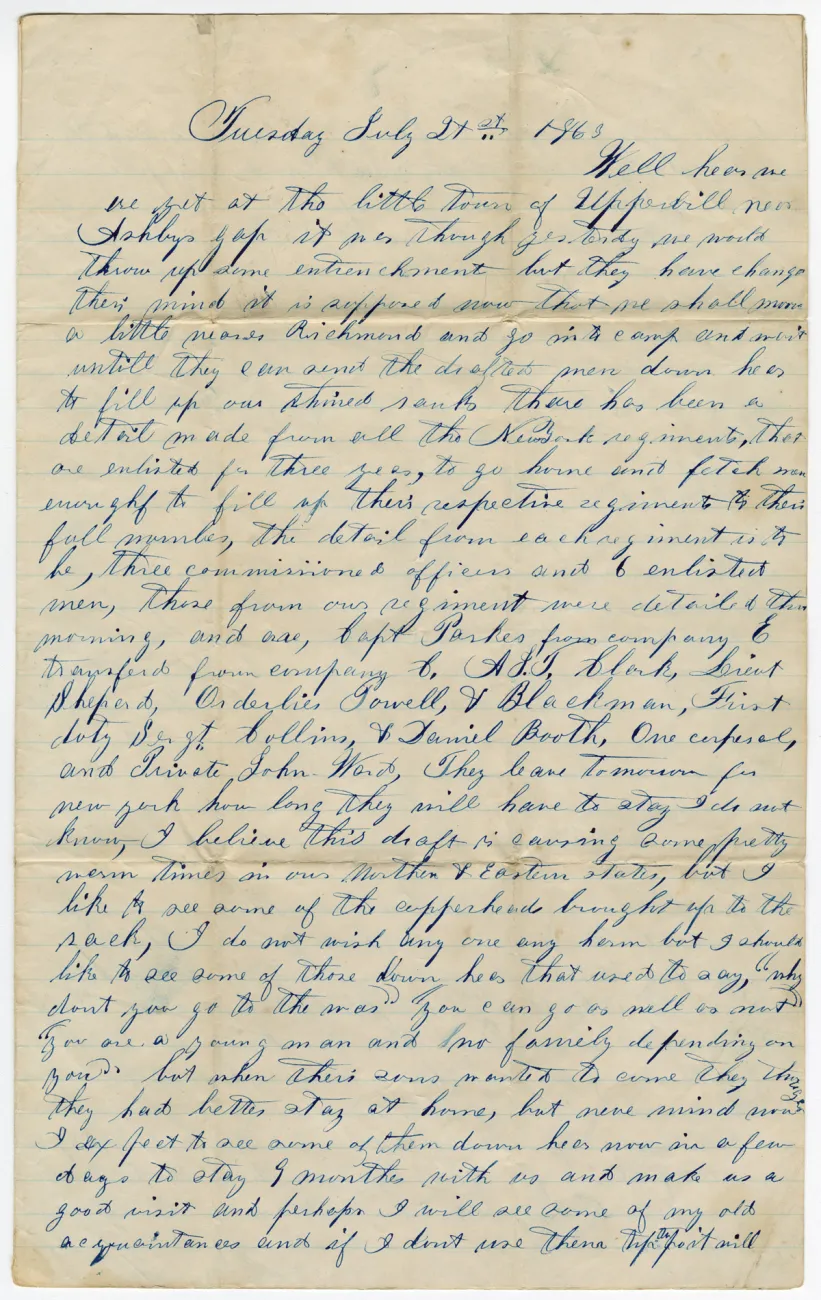 Tuesday July 21st 1863
Well hear we
are yet at tho little town of Uppervill near
Ashbys gap it was though yestardy we would
throw up some entrenchment but they have change
their mind it is supposed now that we shall move
a little nearer Richmond and go into camp and wait
untill they can send the drafted men down hear
to fill up our thined ranks there has been a
detail made from all the NewYork regiments, that
are enlisted for three years, to go home and fetch men
enoughf to fill up their respective regiments to their
full number, the detail from each regiment is to
be, three commissioned officers and 6 enlisted
men, those from our regiment were detailed this
morning, and are, Capt Parker from company E
transferd from company C. A.J.T. Clark, Lieut
Sheperd, Orderlies Powell, & Blackman, First
duty Sergt. Collins, & Daniel Booth, One corperal,
and Private John Ward, They leave tomorrow for
new york how long they will have to stay I do not
know, I believe this draft is causing some pretty
warm times in our Northen & Eastern states, but I
like to see some of the copperheads brought up to the
rack, I do not wish any one any harm but I should
like to see some of those down hear that used to say, "why
dont you go to the war" "you can go as well as not"
"you are a young man and no famiely depending on
you" but when their sons wanted to come they
they had better stay at home, but never mind now
I expect to see some of them down hear now in a few
days to stay 9 months with us and make us a
good visit and perhaps I will see some of my old
acquaintances and if I dont use them tip top it will